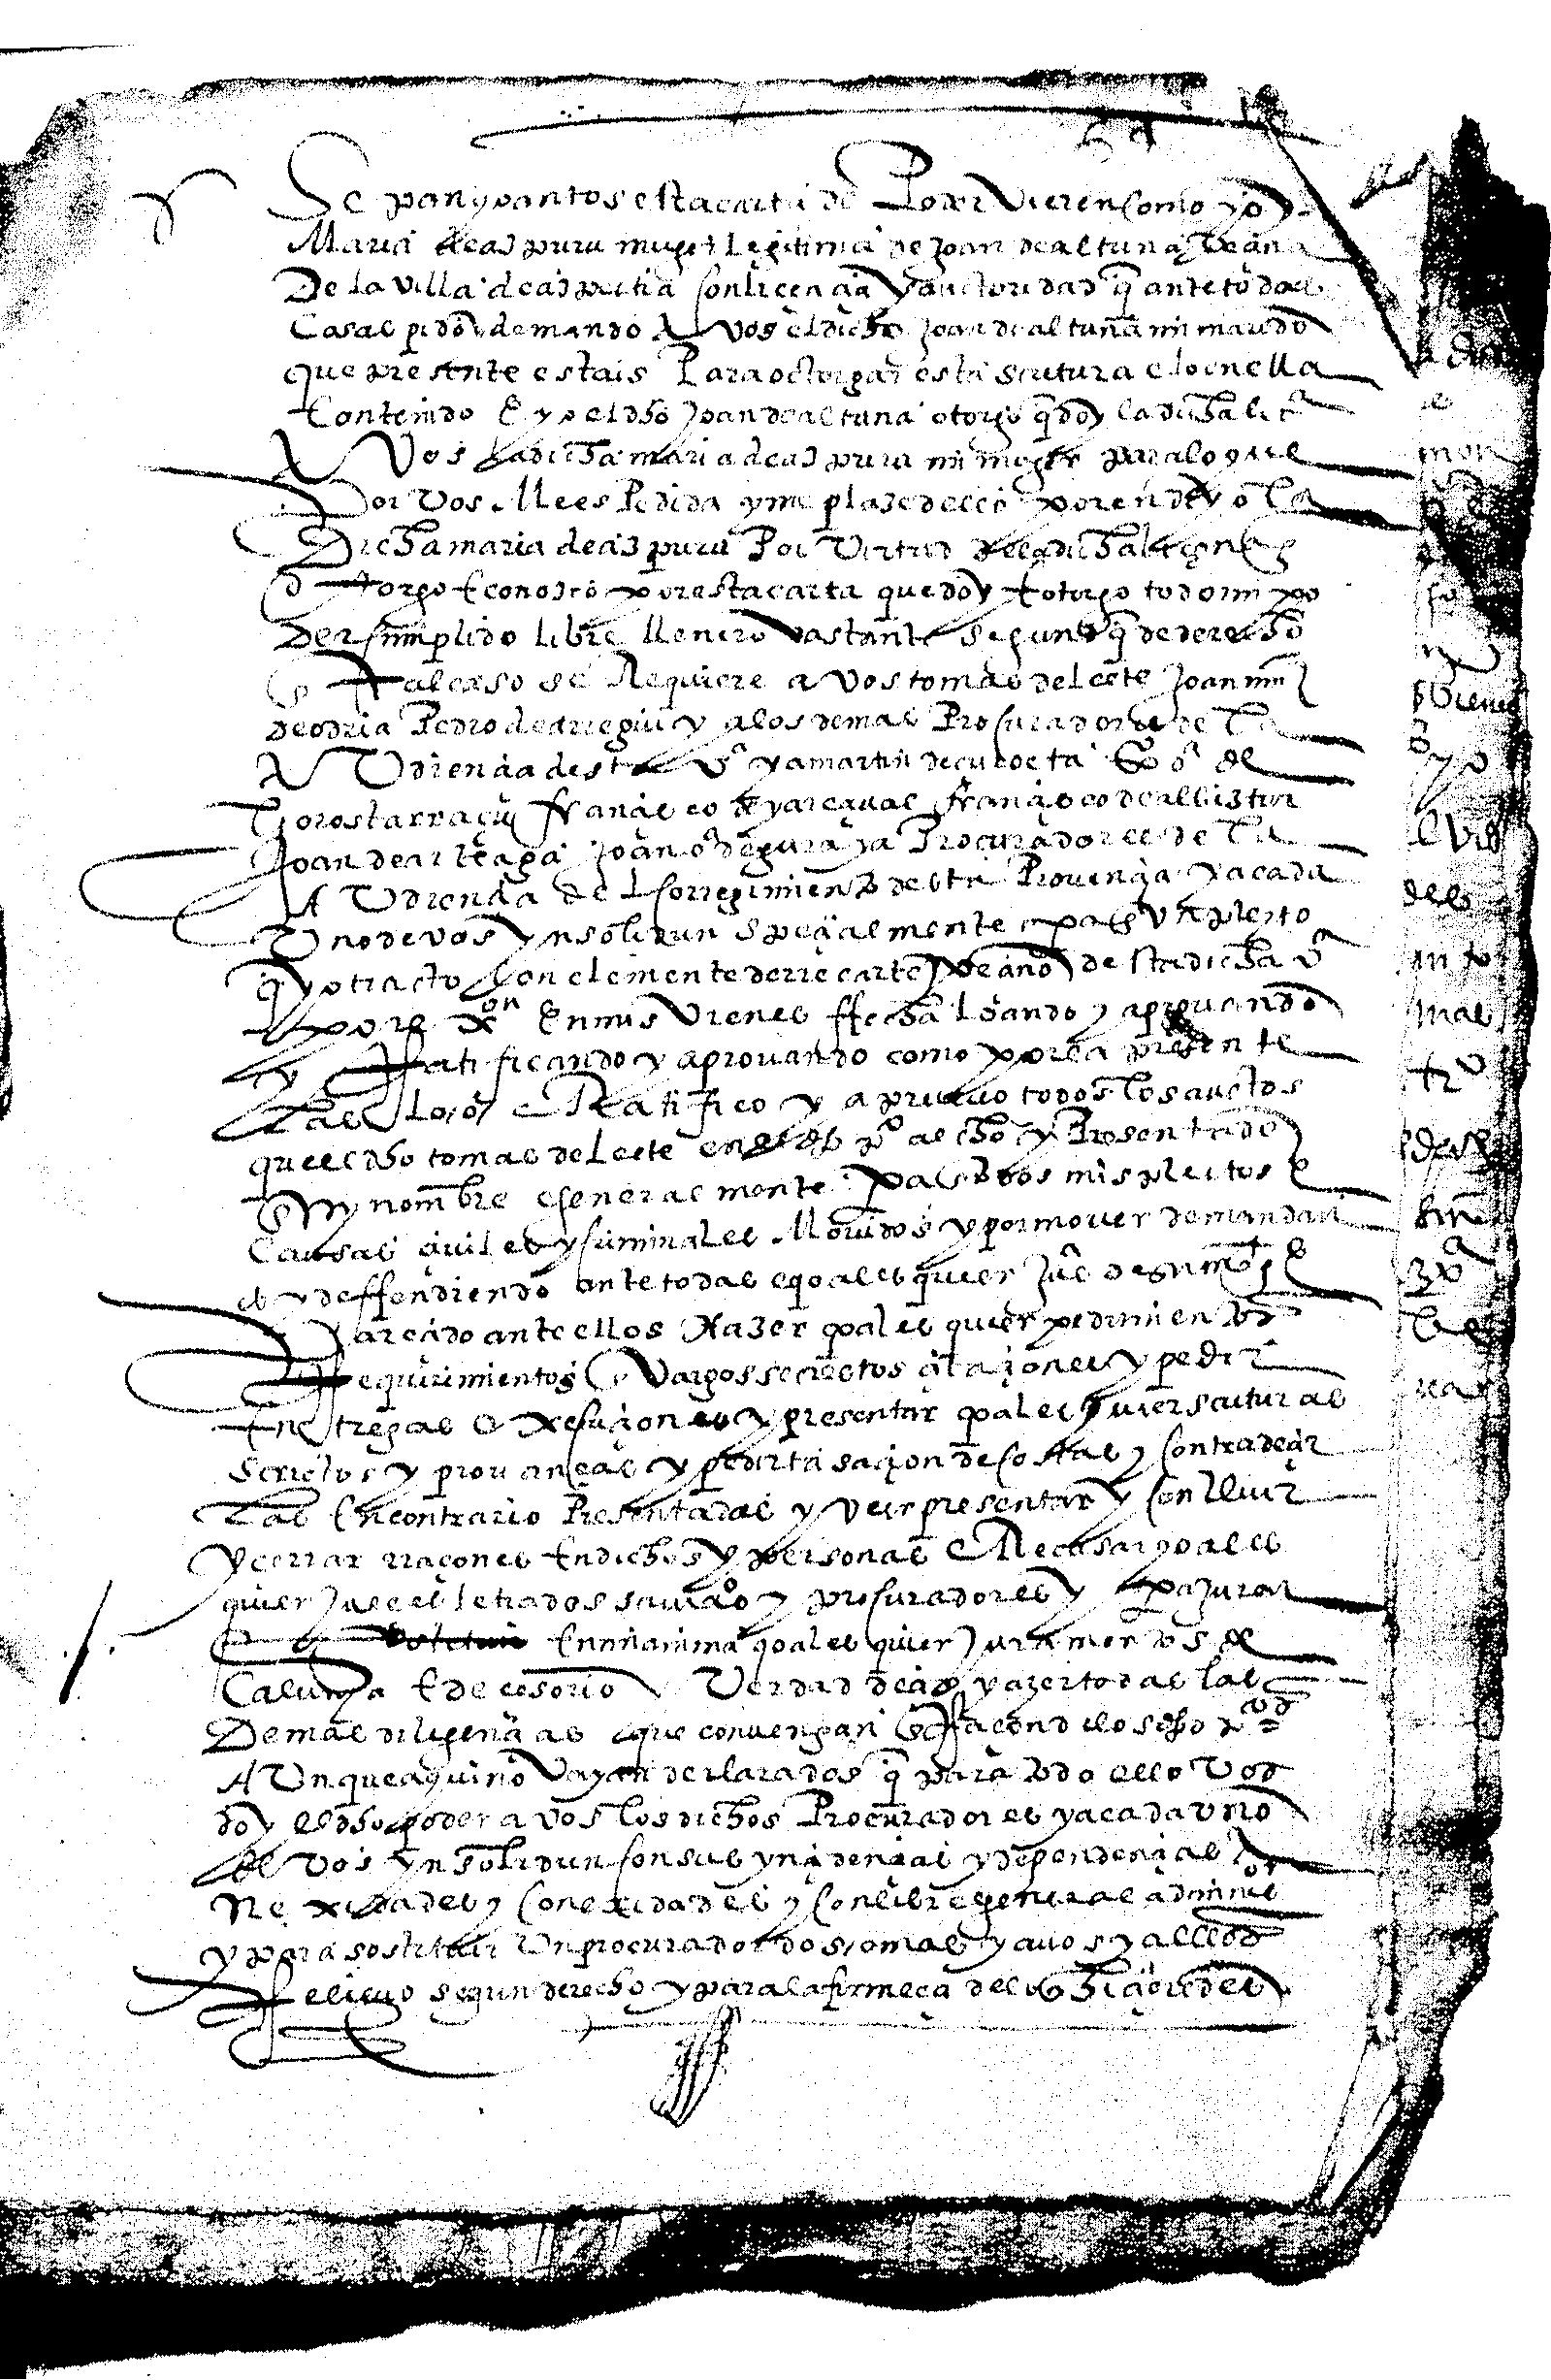 Sepan quantos esta carta de Poder vieren como yo
Maria de azpuru muger legitima de Joan de altuna veçina
De la villa de azpeitia con liçençia y auctoridad q ante todas
Casas pido e demando A vos el dicho Joan de altuna mi marido
que presente estais Para octorgar esta scritura e lo en ella
Contenido E yo el dho Joan de altuna otorgo q doy la dicha liça
A Vos la dicha maria de azpuru mi muger para lo que
Por vos Me es Pedida y me plaze de ello por ende yo la
Dicha maria de azpuru Por Virtud de la dicha liçençia
otorgo E conozco por esta carta que doy E otorgo todo mi po
Der cumplido libre llenero vastante segund q de derecho
E tal caso se Requiere a vos tomas del cete Joan mrz
de odria Pedro de arregui y a los demas Procuradores de la
AUdiençia desta va y a martin de curoeta de
Gorostarraçu françisco de yarçaval françisco de albiztur
Joan de arteaga Joan de guraya Procuradores de la
AUdiençia del Corregimiento desta Provinçia y a cada
Uno de vos ynsolidun speçialmente pa en Un pleyto
q yo tracto con clemente de rrecarte veçino de sta dicha va
por exon En mis vienes ffecha loando y aprovando
y Ratificando y aprovando como por la presente
Las Loo e Ratifico y apruevo todos los auctos
que el dho tomas del cete en el dho po a echo y Presentado
En my nombre e generalmente pa en todos mis pleitos E
Causas çiviles y criminales Movidos y por mover demandan
do y deffendiendo ante todas e qoales quier Juzes de su mt E
Pareçido ante ellos Hazer qoales quier pedimientos
Requirimientos E Vargos secrectos çitaçiones y pedir
Entregas E Execuçiones y presentar qoales quier scituras
Scrictos y provanças y pedir tasaçion de costas y contradeçir
Las En contrario Presentadas y ver presentar y concluir
y çerrar rraçones En dichos y personas E Recusar qoales
quier Juezes letrados scrivaos y procuradores y pa jurar
En mi anima qoales quier Juramentos de
Calunia E deçesorio Verdad deçir y azer todas las
Demas diligençias que convengan E
AUnque aqui no Vayan declarados q para todo ello vos
doy el dho poder a vos los dichos Procuradores y a cada uno
de vos ynsolidun con sus ynçidençias y dependençias
Nexidades y conexidades y con libre e general adminis
y para sostituir Un procurador dos o mas y a vos y a ellos
Relievo segun derecho y para la firmeça de lo